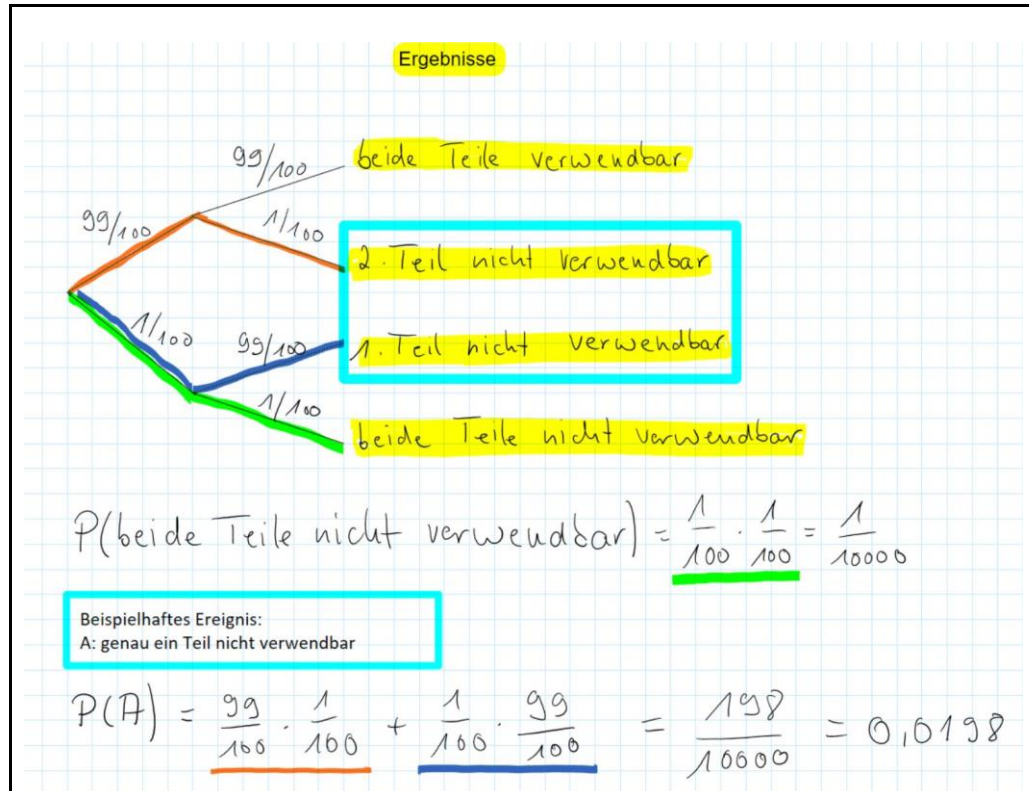 Ergebnisse
99/100 beide Teile verwendbar
99/100 1/100
2. Teil nicht verwendbar
1/100 99/100 1. Teil nicht verwendbar
1/100
beide Teile nicht verwendbar
P(beide Teile nicht verwendbar) = 1/100 · 1/100 = 1/10000
Beispielhaftes Ereignis:
A: genau ein Teil nicht verwendbar
P(A) = 99/100 · 1/100 + 1/100 · 99/100 = 198/10000 = 0,0198